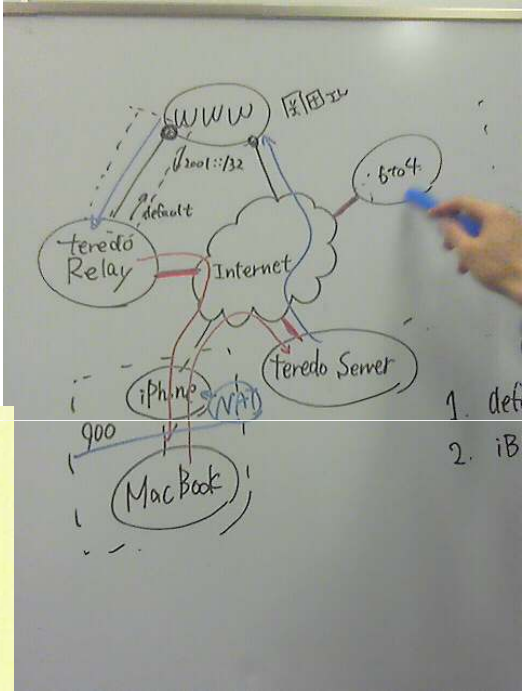 WWW
2001::/32
default
6to4
teredo
Relay
Internet
teredo Server
iPhone
NAT
900
MacBook
1. def
2. iB